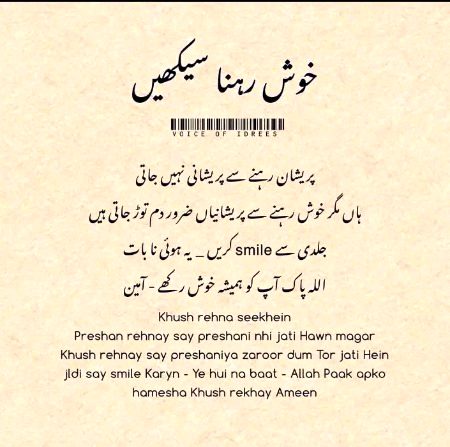 خوش رہنا سیکھیں
VOICE OF IDREES
پریشان رہنے سے پریشانی نہیں جاتی
ہاں مگر خوش رہنے سے پریشانیاں ضرور دم توڑ جاتی ہیں
جلدی سے smile کریں _ یہ ہوئی نا بات
اللہ پاک آپ کو ہمیشہ خوش رکھے - آمین
Khush rehna seekhein
Preshan rehnay say preshani nhi jati Hawn magar
Khush rehnay say preshaniya zaroor dum Tor jati Hein
jldi say smile Karyn - Ye hui na baat - Allah Paak apko
hamesha Khush rekhay Ameen